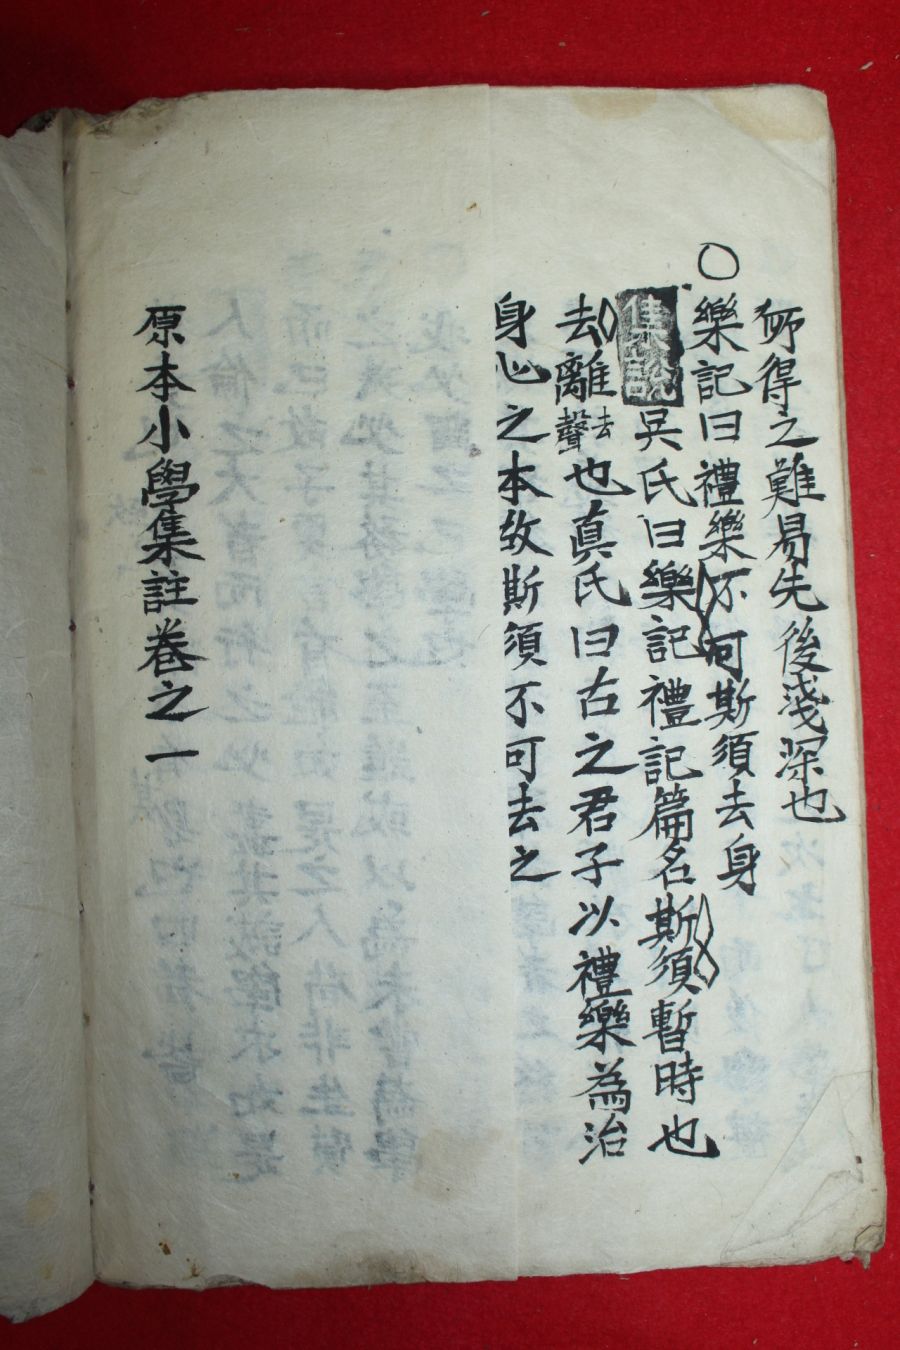 師得之難易先後淺深也
○樂記曰禮樂不可斯須去身
集說吳氏曰樂記禮記篇名斯須暫時也
去離去聲也真氏曰古之君子以禮樂為治
身心之本故斯須不可去之
原本小學集註卷之一